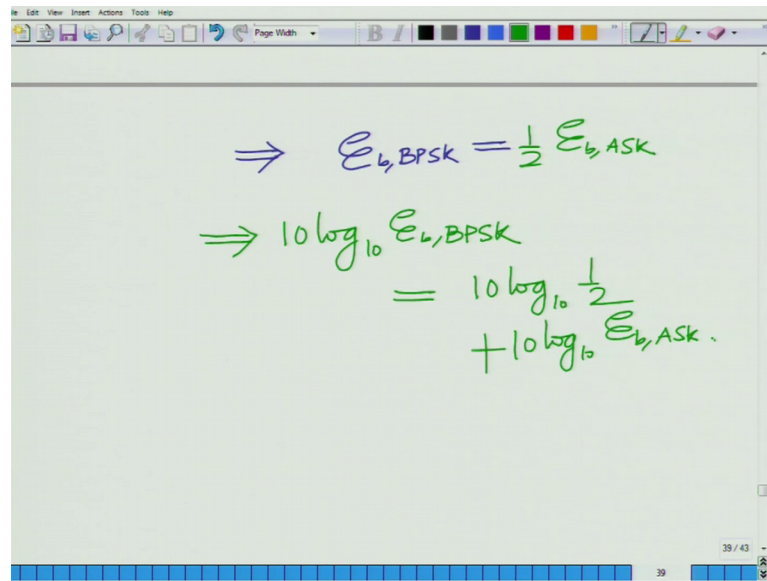 File Edit View Insert Actions Tools Help
Page Width B I
⇒ ℰb,BPSK = 1/2 ℰb,ASK
⇒ 10 log10 ℰb,BPSK
= 10 log10 1/2
+ 10 log10 ℰb,ASK.
39 / 43
39